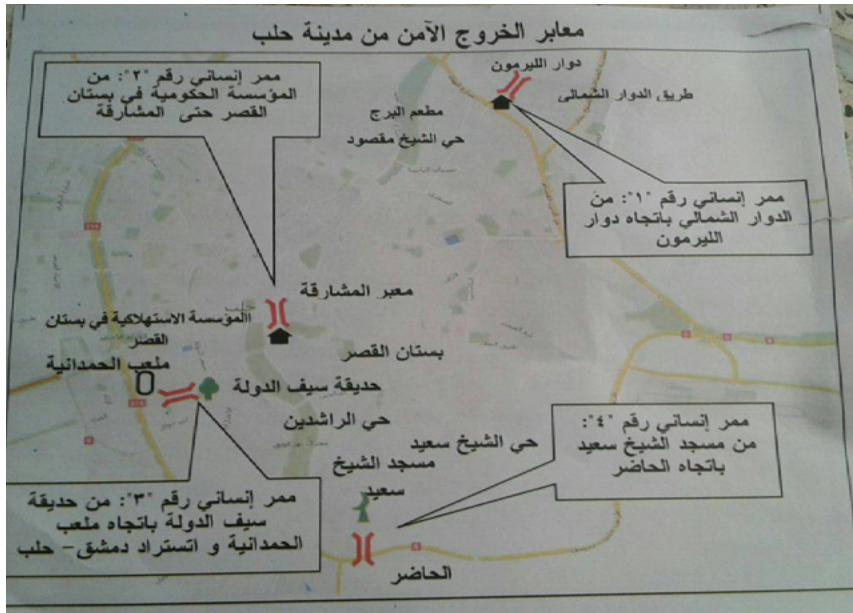 معابر الخروج الآمن من مدينة حلب
دوار الليرمون
طريق الدوار الشمالي
ممر إنساني رقم "٢": من
المؤسسة الحكومية في بستان
القصر حتى المشارقة
مطعم البرج
حي الشيخ مقصود
ممر إنساني رقم "١": من
الدوار الشمالي باتجاه دوار
الليرمون
معبر المشارقة
المؤسسة الاستهلاكية في بستان
القصر
بستان القصر
ملعب الحمدانية
حديقة سيف الدولة
حي الراشدين
حي الشيخ سعيد
مسجد الشيخ
سعيد
ممر إنساني رقم "٤":
من مسجد الشيخ سعيد
باتجاه الحاضر
ممر إنساني رقم "٣": من حديقة
سيف الدولة باتجاه ملعب
الحمدانية و اتستراد دمشق - حلب
الحاضر
حلب